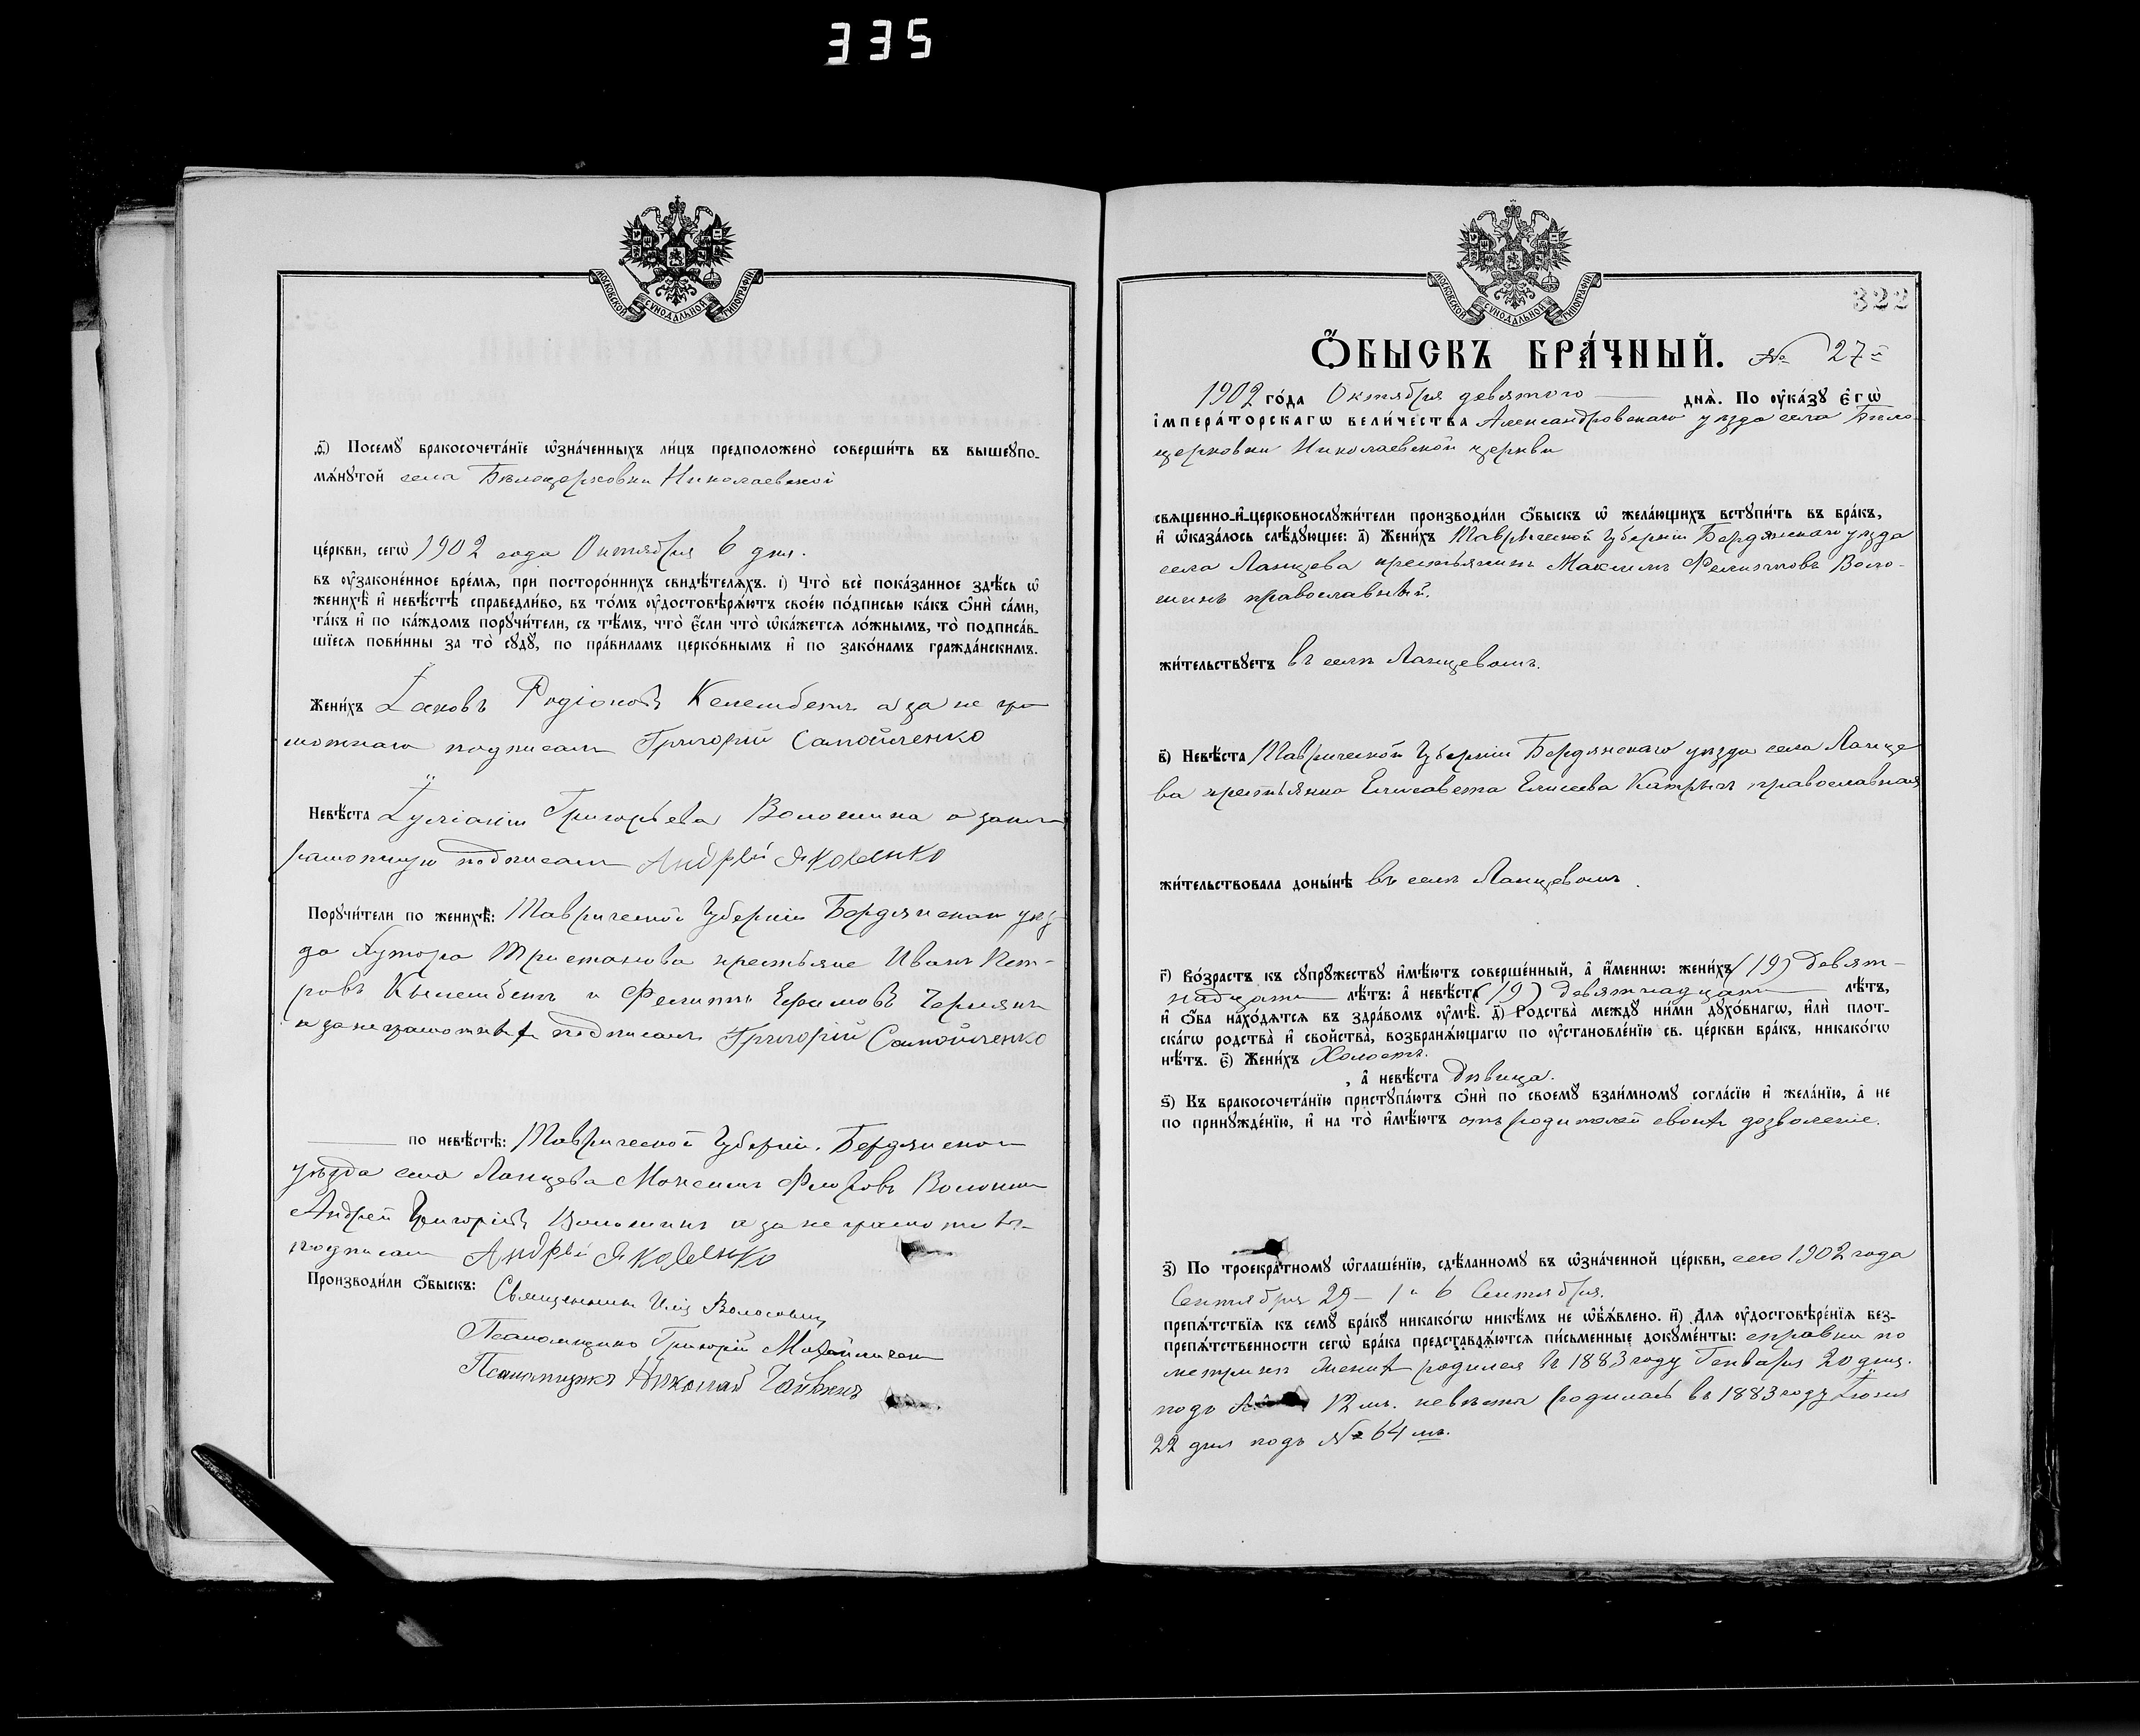 335
МОСКОВСКОЙ СУНОДАЛЬНОЙ ТИПОГРАФІИ
ѳ҃) Посемꙋ̀ бракосочета́нїе ѡ҆зна́ченныхъ ли́цъ предположено̀ соверши́ть въ вышеꙋпо-
мѧ́нꙋтой села Бѣлоцерковки Николаевской
це́ркви, сегѡ̀ 1902 года Октября 6 дня.
въ ᲂу҆зако́не́нное вре́мѧ, при посторо́ннихъ свидѣ́телѧхъ. і҃) Что̀ всѐ пока́занное здѣ́сь ѡ҆
женихѣ̀ и҆ невѣ́стѣ справедли́во, въ то́мъ ᲂу҆достовѣрѧ́ютъ свое́ю по́дписью ка́къ ѻ҆нѝ са́ми,
та́къ и҆ по ка́ждомъ порꙋчи́тели, съ тѣ́мъ, что̀ є҆́сли что̀ ѡ҆ка́жетсѧ ло́жнымъ, то̀ подписа́в-
шїесѧ пови́нны за то̀ сꙋдꙋ̀, по пра́виламъ церко́внымъ и҆ по зако́намъ гражда́нскимъ.
Жени́хъ Іаковъ Родіоновъ а за не гра-
мотнаго подписалъ Григорій Самойленко
Невѣ́ста Григорьева Волошина а за не
грамотную подписалъ Андрѣй Яковенко
Порꙋчи́тели по женихѣ̀: Таврической Губерніи Бердянскаго уѣз-
да Хутора крестьяне Иванъ Пет-
ровъ и Филиппъ Ефимовъ
а за неграмотныхъ подписалъ Григорій Самойленко
по невѣ́стѣ: Таврической Губерніи. Бердянскаго
уѣзда села Ланцева Волошинъ
Андрей Григорьевъ Волошинъ а за не грамотныхъ
подписалъ Андрѣй Яковенко
Производи́ли ѻ҆́быскъ: Священникъ Илія
Псаломщикъ Григорій
Псаломщикъ Николай
МОСКОВСКОЙ СУНОДАЛЬНОЙ ТИПОГРАФІИ
322
Ѻ҆́БЫСКЪ БРА́ЧНЫЙ. № 27й
1902 го́да Октября девятого днѧ̀. По ᲂу҆ка́зꙋ Є҆гѡ̀
і҆мпера́торскагѡ вели́чества Александровскаго уѣзда села Бѣло-
церковки Николаевской церкви
свѧщенно-и҆-церковнослꙋжи́тели производи́ли ѻ҆́быскъ ѡ҆ жела́ющихъ встꙋпи́ть въ бра́къ,
и҆ ѡ҆каза́лось слѣ́дꙋющее: а҃) Жени́хъ Таврической Губерніи Бердянскаго уѣзда
села Ланцева крестьянинъ Максимъ Филипповъ Воло-
шинъ православный.
жи́тельствꙋетъ въ селѣ Ланцевомъ.
в҃) Невѣ́ста Таврической Губерніи Бердянскаго уѣзда села Ланце
ва крестьянка Елисавета Елисеева православная
жи́тельствовала доны́нѣ въ селѣ Ланцевомъ.
г҃) Во́зрастъ къ сꙋпрꙋ́жествꙋ и҆мѣ́ютъ соверше́нный, а҆ и҆́меннѡ: жени́хъ (19) девят-
надцати лѣ́тъ: а҆ невѣ́ста (19) девятнадцати лѣ́тъ,
и҆ ѻ҆́ба нахо́дѧтсѧ въ здра́вомъ ᲂу҆мѣ̀. д҃) Родства̀ междꙋ̀ ни́ми дꙋхо́внагѡ, и҆лѝ плот-
ска́гѡ родства̀ и҆ сво́йства̀, возбранѧ́ющагѡ по ᲂу҆становле́нїю св. це́ркви бра́къ, никако́гѡ
нѣ́тъ. є҃) Жени́хъ Холостъ.
, а҆ невѣ́ста дѣвица.
ѕ҃) Къ бракосочета́нїю пристꙋпа́ютъ ѻ҆нѝ по своемꙋ̀ взаи́мномꙋ согла́сїю и҆ жела́нїю, а҆ не
по принꙋжде́нїю, и҆ на то̀ и҆мѣ́ютъ отъ родителей своихъ дозволеніе.
з҃) По троекра́тномꙋ ѡ҆глаше́нїю, сдѣ́ланномꙋ въ ѡ҆зна́ченной це́ркви, сего 1902 года
Сентября 29 — 1 и 6 Сентября.
препѧ́тствїѧ къ семꙋ̀ бра́кꙋ никако́гѡ никѣ́мъ не ѡ҆б̾ѧ́влено. и҃) Длѧ ᲂу҆достовѣре́нїѧ без-
препѧ́тственности сегѡ̀ бра́ка представлѧ́ютсѧ пи́сьменные докꙋме́нты: справки по
метрикѣ женихъ родился въ 1883 году Генваря 20 дня.
подъ 12 мъ. невѣста родилась въ 1883 году Іюня
22 дня подъ № 64 мъ.